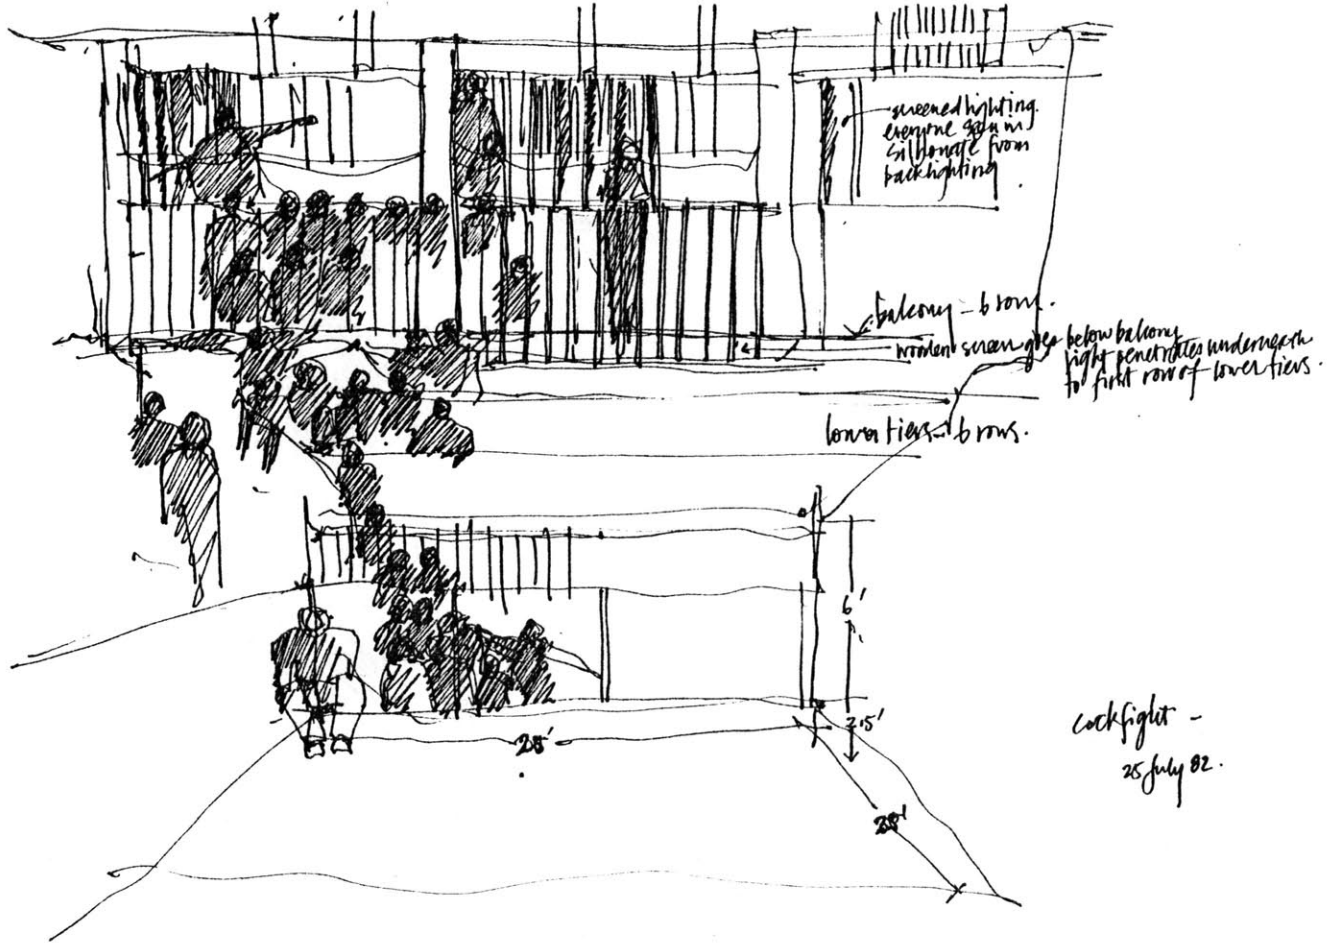 screened lighting.
everyone seen in
silhouate from
backlighting
balcony - 6 rows.
wooden screen goes below balcony
light penetrates underneath
to first row of lower tiers.
lower tiers - 6 rows.
6'
2.5'
28'
28'
cockfight -
25 July 82.